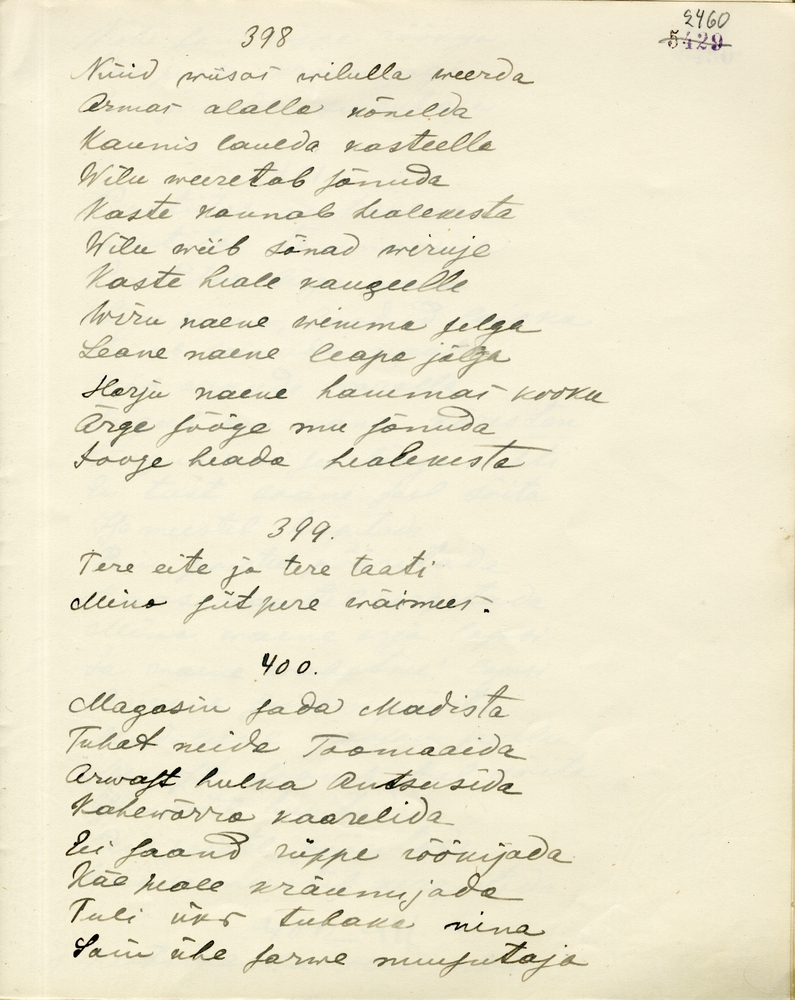 2460
5429
398
Nüid wiisas wilulla weerda
Armas alalla kõnelda
Kaunis laulda kasteella
Wilu weeretab sõnuda
Kaste kannab healekesta
Wilu wiib sõnad wiruje
Kaste heale kaugeelle
Wiru naene wimma selga
Leane naene leapa jälga
Harju naene hammas kooku
Ärge sööge mu sõnuda
Sooge heada healekesta
399.
Tere eite ja tere taati
Mino siit pere wäimees.
400.
Magasin sada Madista
Tuhat neida Toomaaida
Arwast hulka Antsusida
Kahewõrra kaarelida
Ei saand rüppe röökijada
Käe peale kräunujada
Tuli üks tubaka nina
Sain ühe sarwe nuusutaja